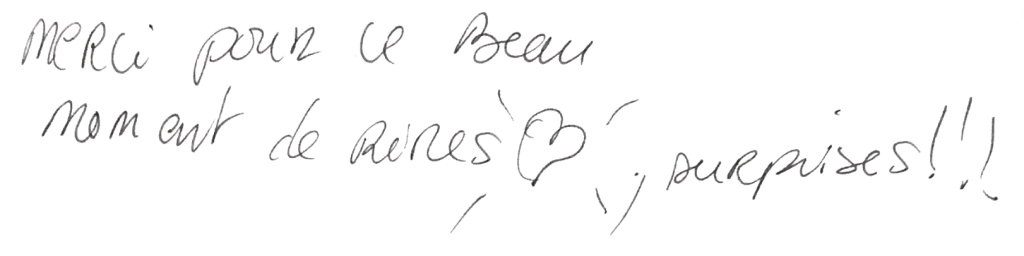 Merci pour ce Beau
moment de rires ♡, surprises!!!